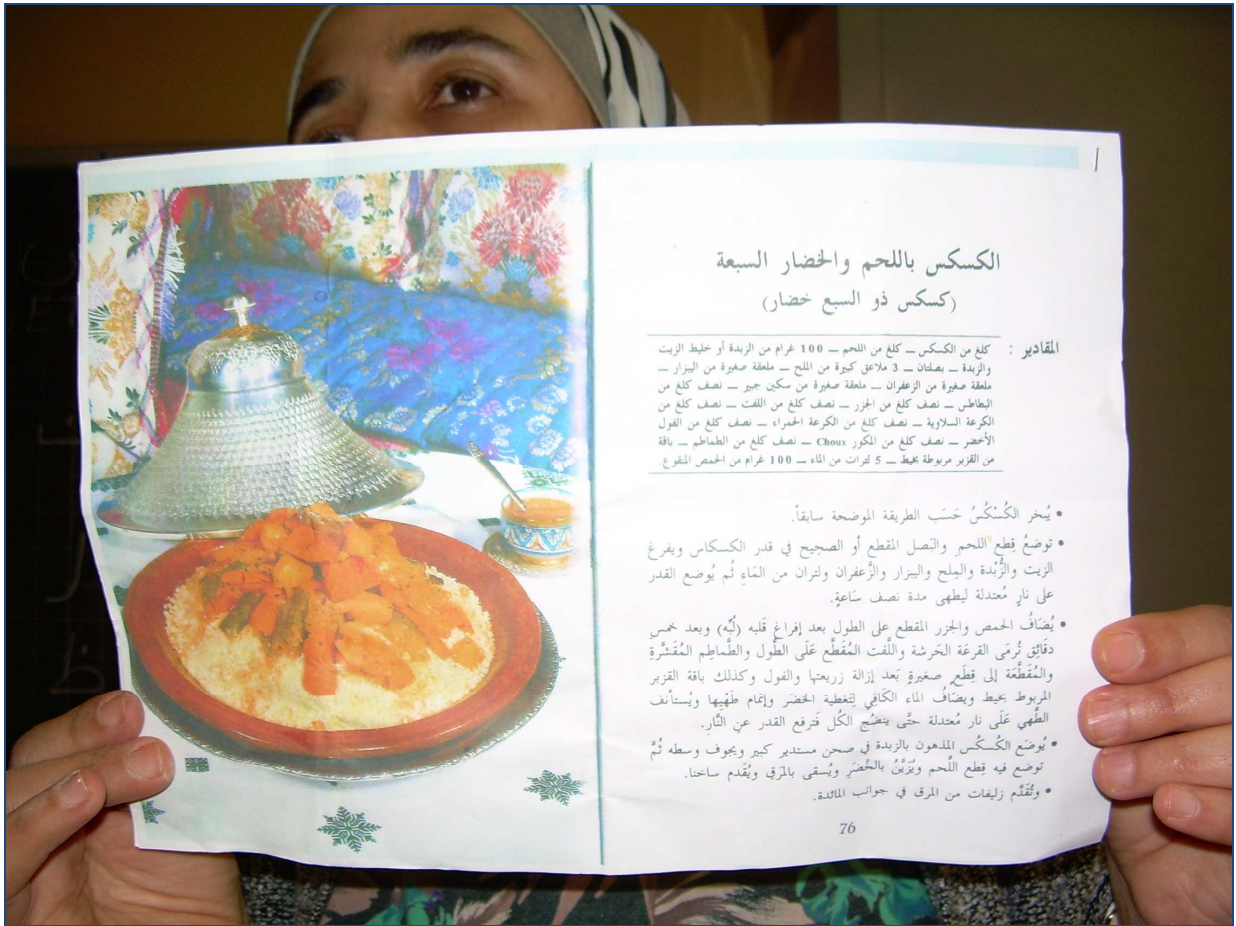 الكسكس باللحم والخضار السبعة
(كسكس ذو السبع خضار)
المقادير : كلغ من الكسكس — كلغ من اللحم — 100 غرام من الزبدة أو خليط الزيت
والزبدة — بصلتان — 3 ملاعق كبيرة من الملح — ملعقة صغيرة من البيزار —
ملعقة صغيرة من الزعفران — ملعقة صغيرة من سكين جبير — نصف كلغ من
البطاطس — نصف كلغ من الجزر — نصف كلغ من اللفت — نصف كلغ من
الكرعة السلاوية — نصف كلغ من الكرعة الحمراء — نصف كلغ من الفول
الأخضر — نصف كلغ من المكور Choux — نصف كلغ من الطماطم — باقة
من القزبر مربوطة بخيط — 5 لترات من الماء — 100 غرام من الحمص المنقوع.
• يُبخر الكُسْكُسُ حَسَب الطريقة الموضحة سابقاً.
• توضعُ قِطع اللحم والبَصل المقطع أو الصحيح في قدر الكسكاس ويفرغ
الزيت والزُّبْدة والمِلح والبيزار والزَّعفران ولتران من المَاءِ ثُم يُوضع القدر
على نارٍ مُعتدلة ليطهى مدة نصف سَاعةٍ.
• يُضَافُ الحمص والجزر المقطع على الطول بعد إفراغ قَلبه (لُبِّه) وبعد خمس
دقَائِق تُرمَى القرعَة الحَرشة واللَّفت المُقَطَّع عَلَى الطُّول والطَّماطِم المُقَشَّرةِ
والمُقَطَّعَة إلى قِطَعٍ صغيرةٍ بَعد إزالة زريعتها والفول وكذلك باقة القزبر
المربوط بخيط ويضَافُ الماء الكَافِي لِتغطية الخضَر وإتمام طَهْيِها ويُستأنف
الطَّهي عَلَى نار مُعتدلة حتَّى ينضُج الكُل فترفع القدر عن النَّارِ.
• يُوضَع الكُسكُس المذهون بالزبدة في صحن مستدير كبير ويجوف وسطه ثُمَّ
توضع فيه قِطع اللَّحم ويُزَيَّنُ بالخُضَرِ ويُسقى بالمَرَقِ ويُقَدم ساخنا.
• وتُقَدَّم زليفات من المرق في جوانب المائدة.
76